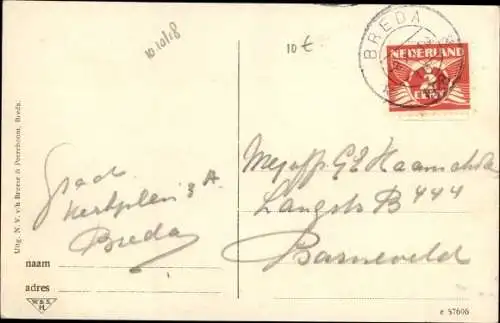 10 €
BREDA
NEDERLAND
3
CENT
Uitg. N. V. v/h Breese & Peereboom, Breda.
Kerkplein 3 A
Breda
naam
adres
W & S
H
Mejuffr. G E
Langstr B 444
Barneveld
e 57606